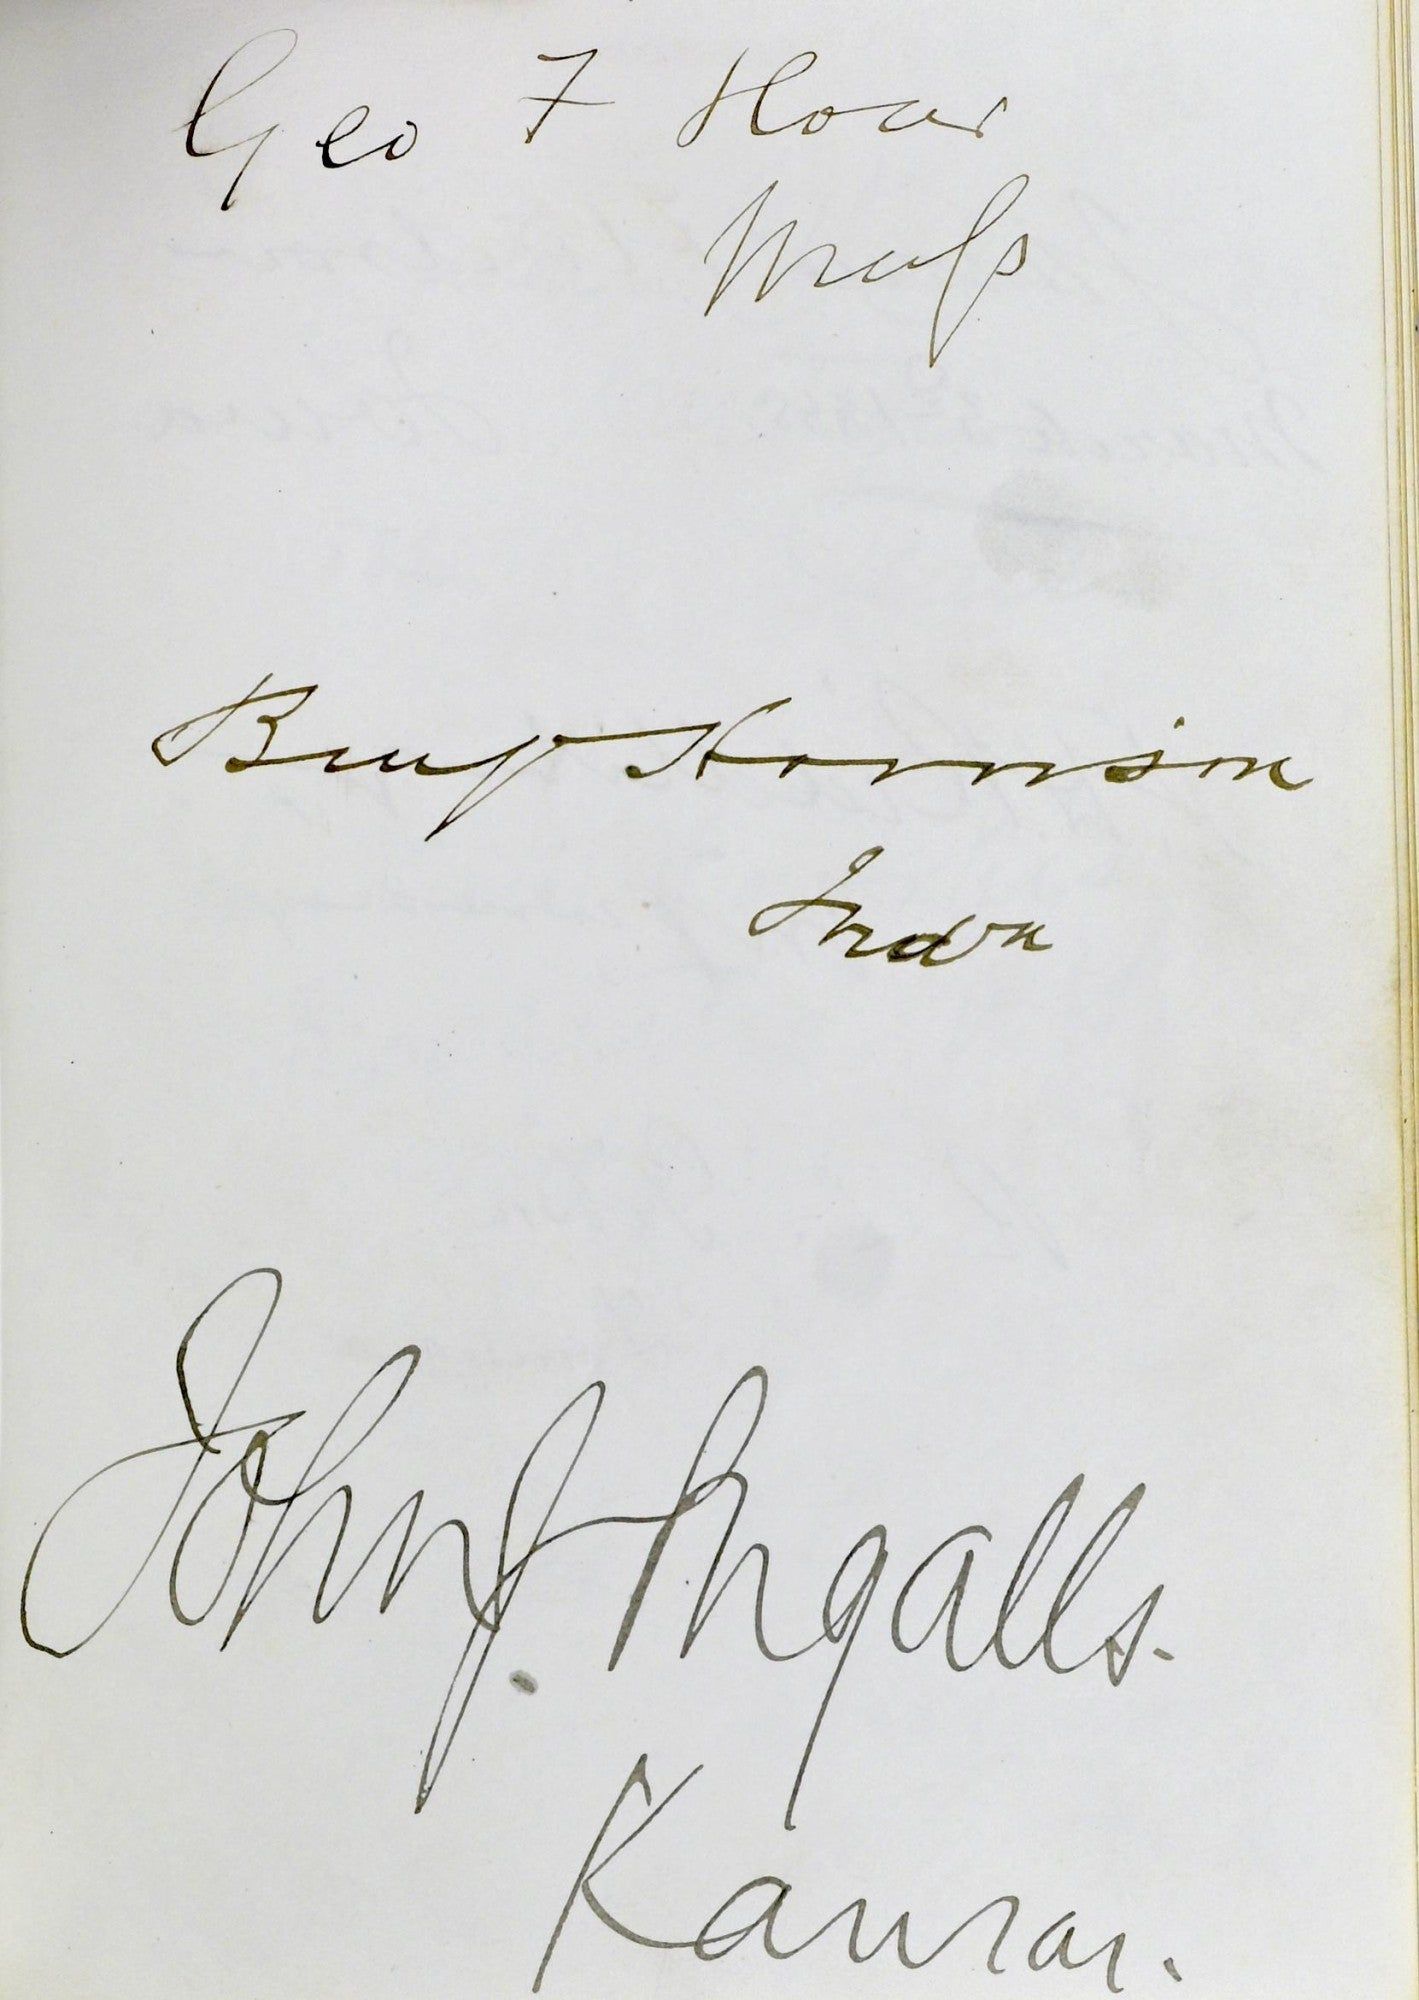 Geo F Hoar
Mass
Benj Harrison
Inda
John J. Ingalls.
Kansas.